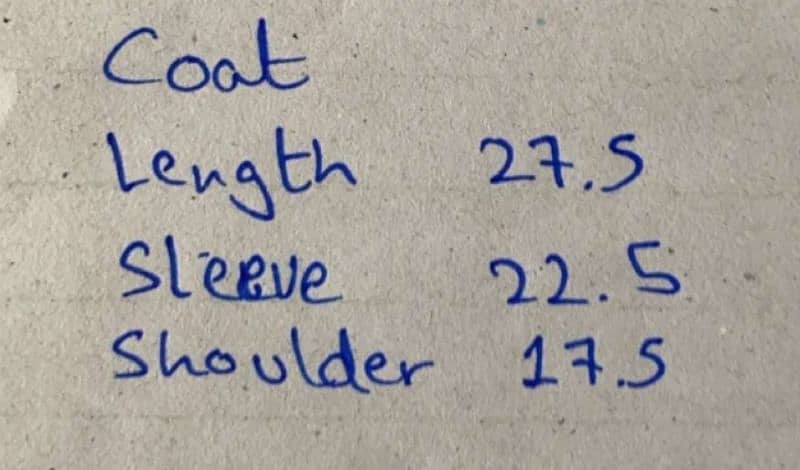 Coat
Length 27.5
Sleeve 22.5
Shoulder 17.5